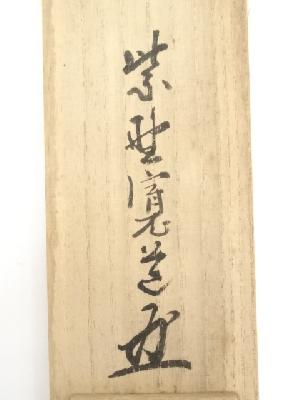 紫野寛道画